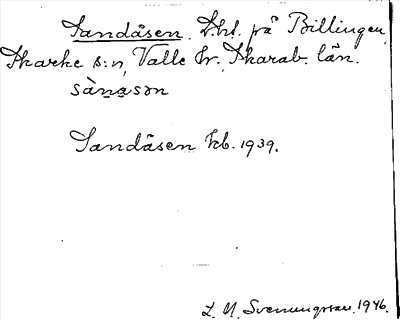 Sandåsen. Lht. på Billingen,
Skarke s:n, Valle hr., Skarab. län.
sànasən
Sandåsen kb. 1939.
L. M. Svenungsson. 1946.